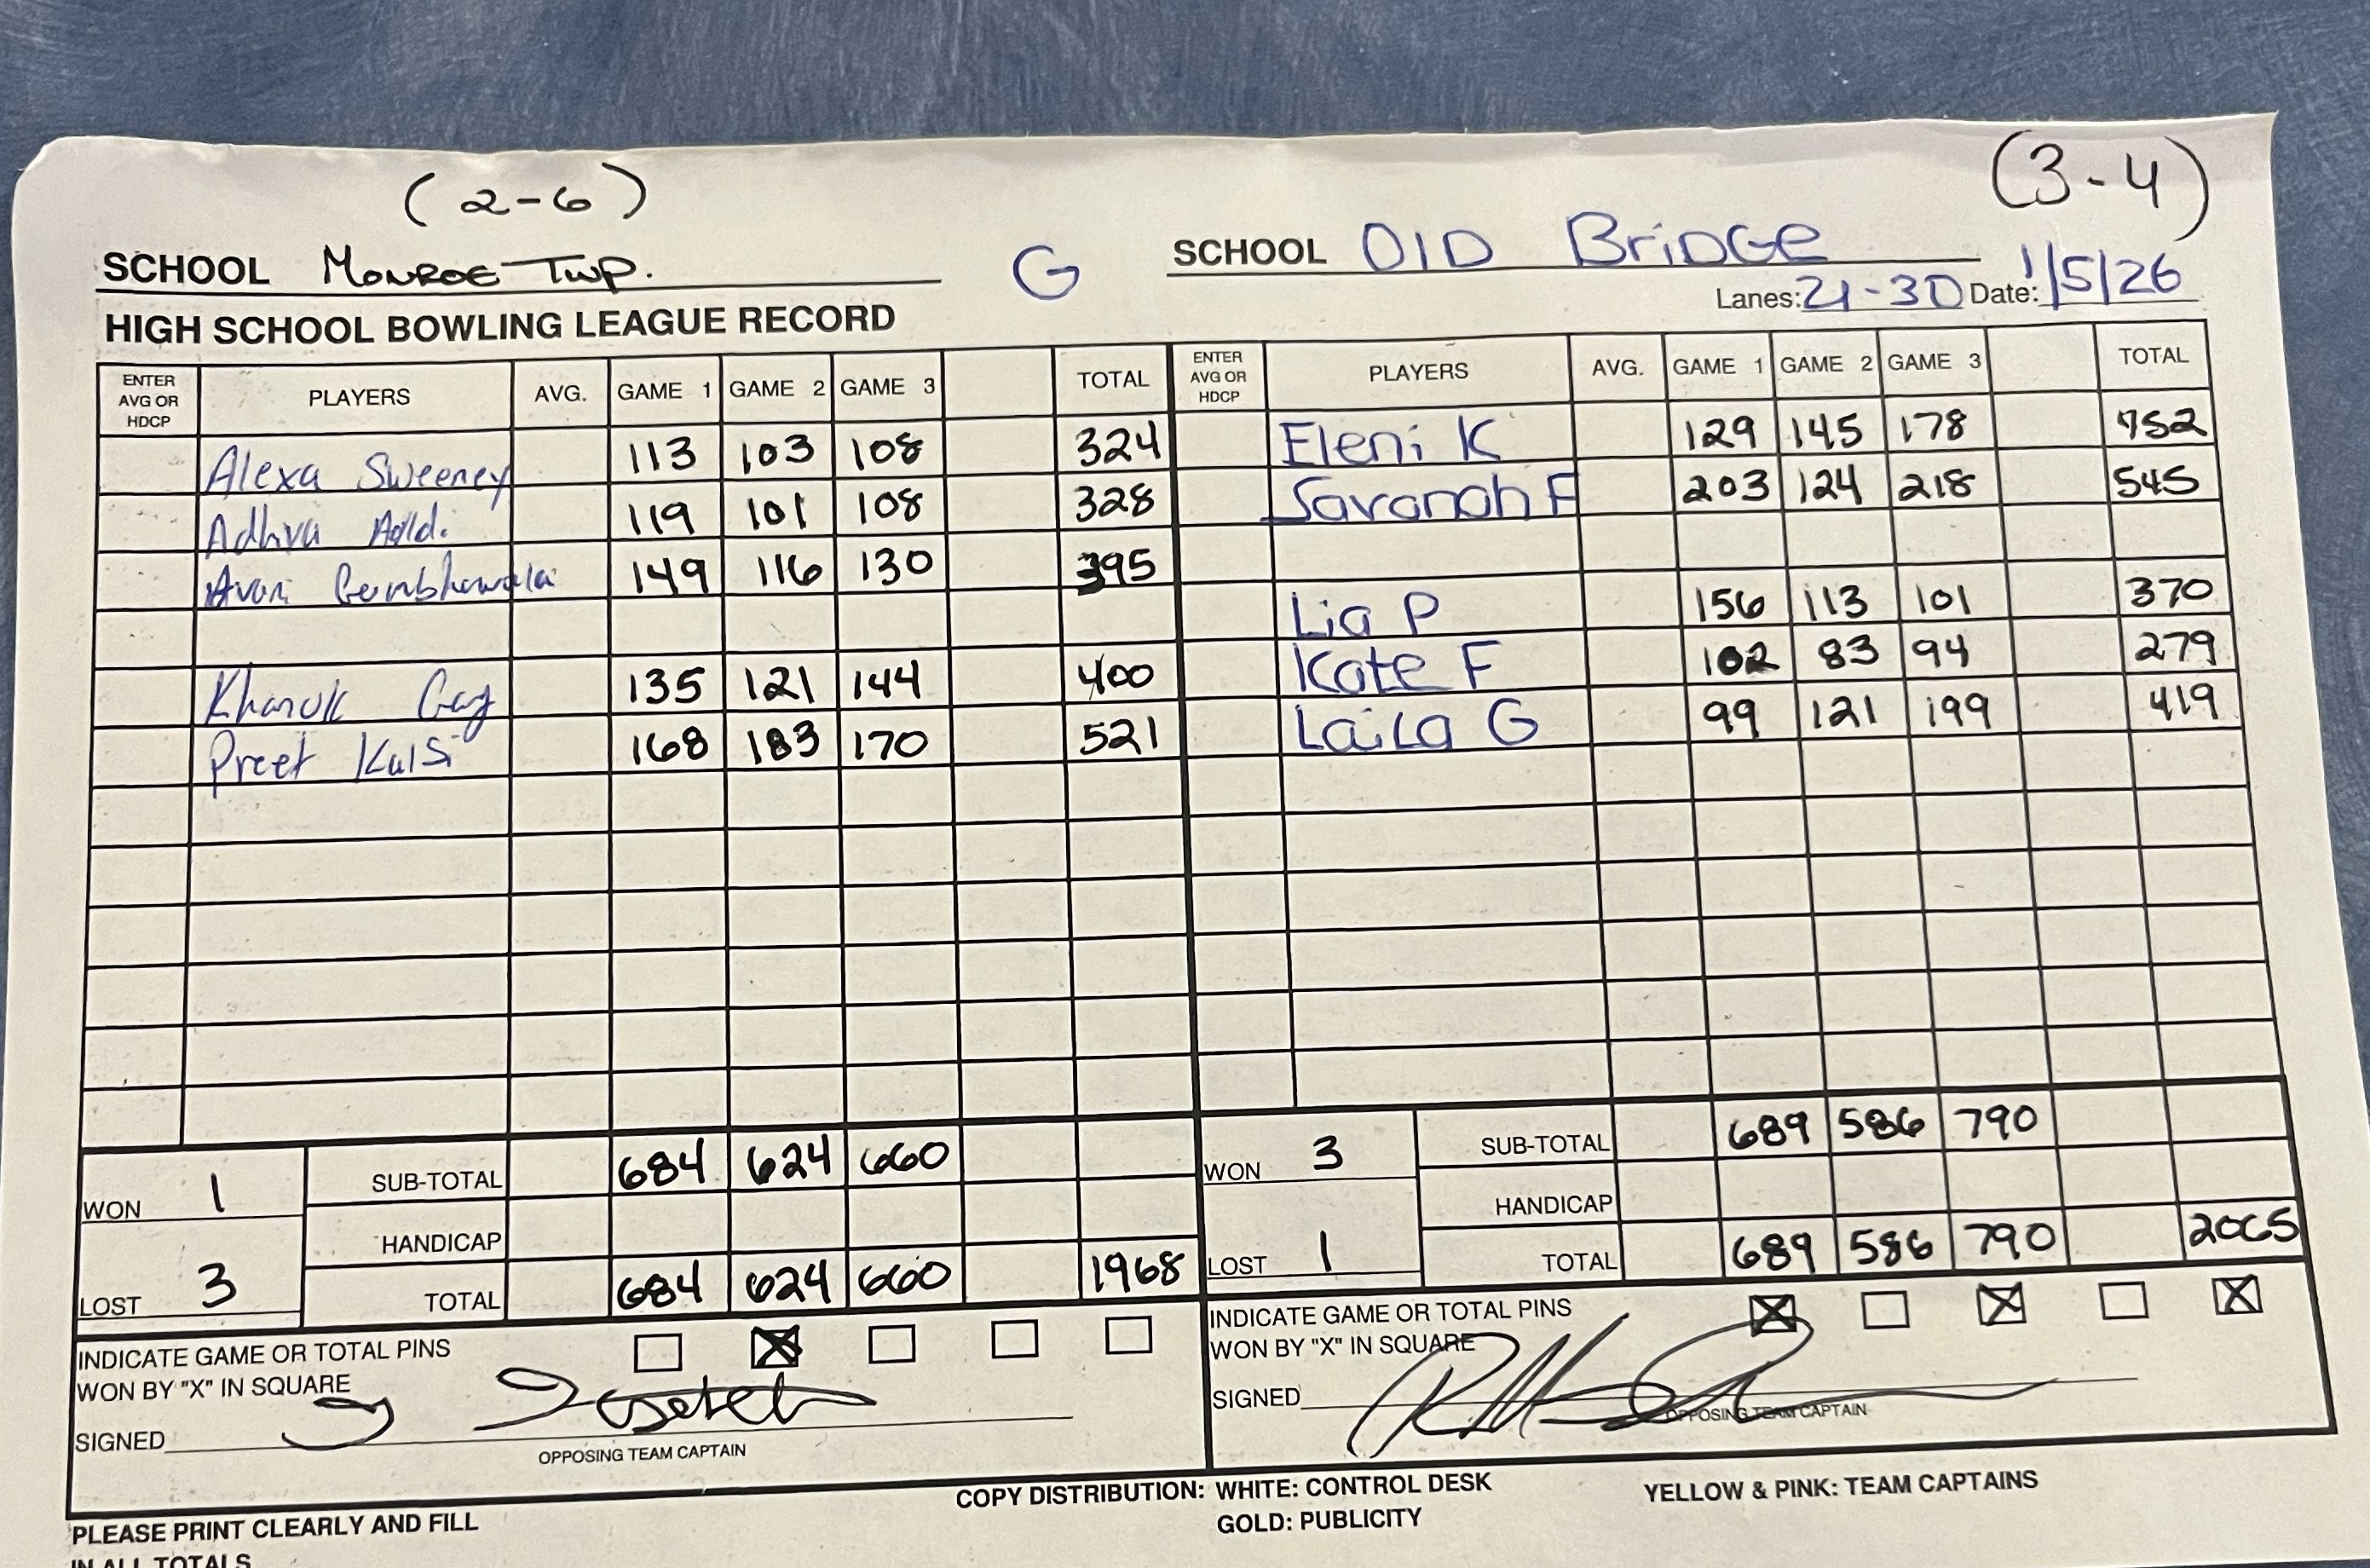 (2-6) (3-4)
SCHOOL Monroe Twp. G SCHOOL OID BriDGe
Lanes: 21-30 Date: 1/5/26
HIGH SCHOOL BOWLING LEAGUE RECORD
ENTER AVG OR HDCP PLAYERS AVG. GAME 1 GAME 2 GAME 3 TOTAL ENTER AVG OR HDCP PLAYERS AVG. GAME 1 GAME 2 GAME 3 TOTAL
Alexa Sweeney 113 103 108 324 Eleni K 129 145 178 452
Adhva 119 101 108 328 Savanah F 203 124 218 545
Avani 149 116 130 395
Lia P 156 113 101 370
135 121 144 400 Kate F 102 83 94 279
Preet Kalsi 168 183 170 521 Laila G 99 121 199 419
WON 1 SUB-TOTAL 684 624 660 WON 3 SUB-TOTAL 689 586 790
HANDICAP HANDICAP
LOST 3 TOTAL 684 624 660 1968 LOST 1 TOTAL 689 586 790 2065
INDICATE GAME OR TOTAL PINS X INDICATE GAME OR TOTAL PINS X X X
WON BY "X" IN SQUARE WON BY "X" IN SQUARE
SIGNED SIGNED
OPPOSING TEAM CAPTAIN OPPOSING TEAM CAPTAIN
COPY DISTRIBUTION: WHITE: CONTROL DESK YELLOW & PINK: TEAM CAPTAINS
GOLD: PUBLICITY
PLEASE PRINT CLEARLY AND FILL
IN ALL TOTALS